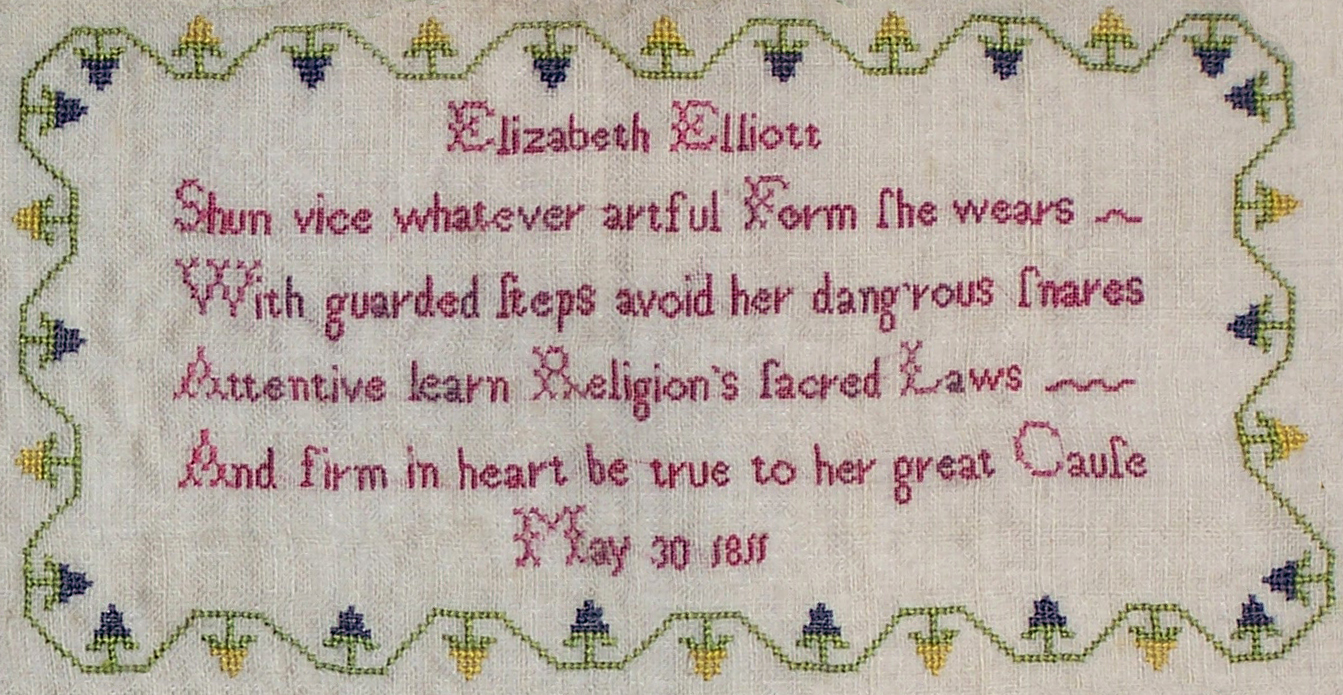 Elizabeth Elliott
Shun vice whatever artful Form ſhe wears ~
With guarded ſteps avoid her dang'rous ſnares
Attentive learn Religion's ſacred Laws ~~
And firm in heart be true to her great Cauſe
May 30 1811